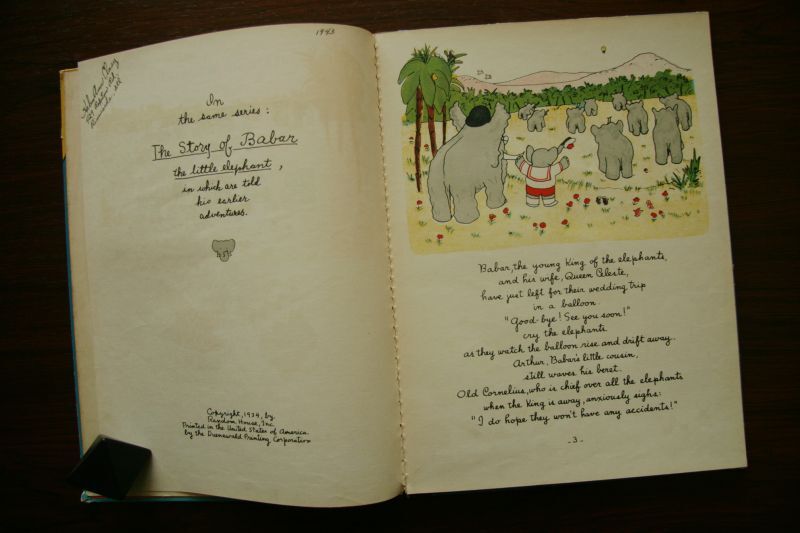 1943
In
the same series:
The Story of Babar
the little elephant,
in which are told
his earlier
adventures.
Copyright, 1934, by
Random House, Inc.
Printed in the United States of America
by the Greenwald Printing Corporation
Babar, the young King of the elephants,
and his wife, Queen Celeste,
have just left for their wedding trip
in a balloon.
"Good-bye! See you soon!"
cry the elephants
as they watch the balloon rise and drift away.
Arthur, Babar's little cousin,
still waves his beret.
Old Cornelius, who is chief over all the elephants
when the King is away, anxiously sighs:
"I do hope they won't have any accidents!"
-3-